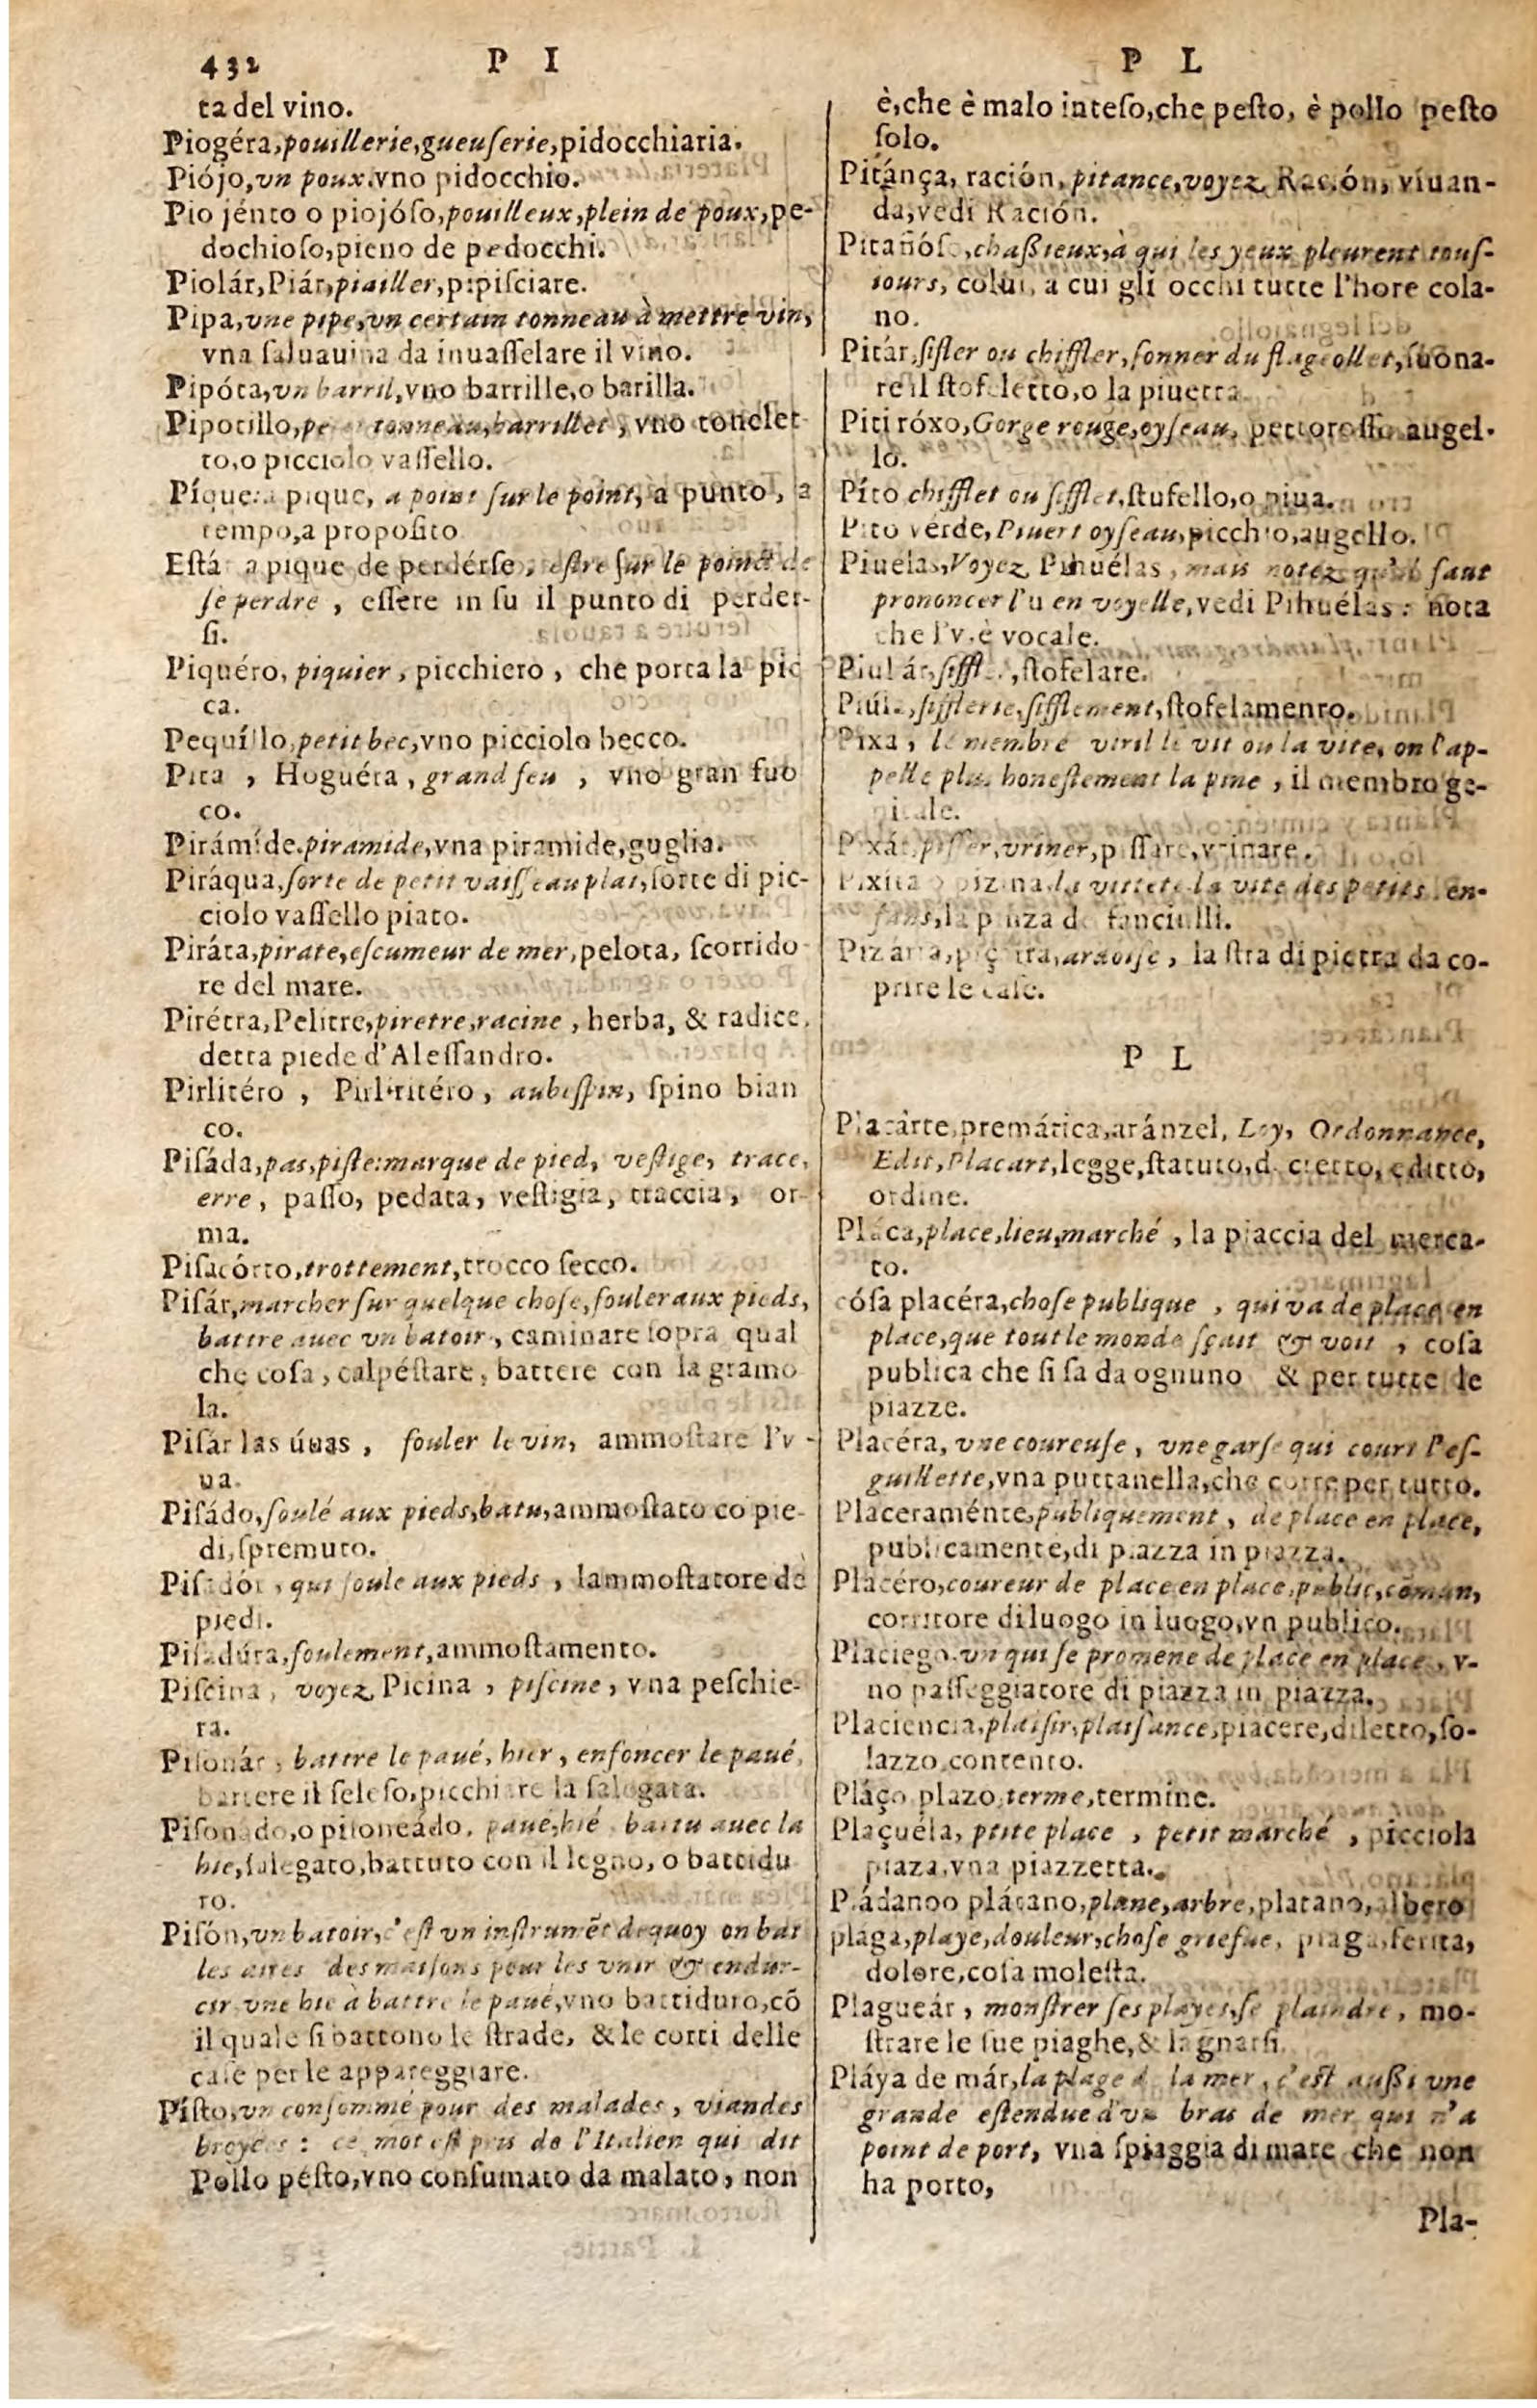 432 P I
ta del vino.
Piogéra,pouillerie,gueuſerie,pidocchiaria.
Piójo,vn poux.vno pidocchio.
Piojénto o piojóſo,pouilleux,plein de poux,pe-
dochioſo,pieno de pedocchi.
Piolár,Piár,piailler,pipiſciare.
Pipa,vne pipe,vn certain tonneau à mettre vin,
vna ſaluauina da inuaſſelare il vino.
Pipóta,vn barril,vno barrille,o barilla.
Pipotillo, tonneau,barrillet, vno tonelet
to,o picciolo vaſſello.
Píque: a pique, a point ſur le point, a punto, a
tempo,a propoſito
Está a pique de perdérſe, eſtre ſur le poinct de
ſe perdre, eſſere in ſu il punto di perder-
ſi.
Piquéro, piquier, picchiero, che porta la pic
ca.
Pequíllo,petit bec,vno picciolo becco.
Pira, Hoguéra, grand feu, vno gran fuo
co.
Pirámide.piramide,vna piramide,guglia.
Piráqua,ſorte de petit vaiſſeau plat,ſorte di pic-
ciolo vaſſello piato.
Piráta,pirate,eſcumeur de mer,pelota, ſcorrido
re del mare.
Pirétra,Pelitre,piretre,racine, herba, & radice,
detta piede d'Aleſſandro.
Pirlitéro, Pirlritéro, aubeſpin, ſpino bian
co.
Piſáda,pas,piſte:marque de pied, veſtige, trace,
erre, paſſo, pedata, veſtigia, traccia, or-
ma.
Piſacórto,trottement,trocco ſecco.
Piſár,marcher ſur quelque choſe,fouler aux pieds,
battre auec vn batoir, caminare ſopra qual
che coſa, calpéſtare, battere con la gramo
la.
Piſár las úuas, fouler le vin, ammoſtare l'v-
ua.
Piſádo,foulé aux pieds,batu,ammoſtato co pie-
di,ſpremuto.
Piſadór, qui foule aux pieds, lammoſtatore dè
piedi.
Piſadúra,foulement,ammoſtamento.
Piſcina, voyez Picina, piſcine, vna peſchie-
ra.
Piſonár, battre le paué, hier, enfoncer le paué,
battere il ſeleſo,picchiare la ſalegata.
Piſonado,o piſoneádo, paué,hié battu auec la
hie,ſalegato,battuto con il legno, o battidu
ro.
Piſón,vn batoir,c'eſt vn inſtrumẽt dequoy on bat
les aires des maiſons pour les vnir & endur-
cir vne hie à battre le paué,vno battiduro,cõ
il quale ſi battono le ſtrade, & le corti delle
caſe per le appareggiare.
Píſto,vn conſommé pour des malades, viandes
broyees: ce mot eſt pris de l'Italien qui dit
Pollo péſto,vno conſumato da malato, non
P L
è,che è malo inteſo,che peſto, è pollo peſto
ſolo.
Pitánça, ración, pitance,voyez Ración, viuan-
da,vedi Ración.
Pitañóſo,chaßieux,à qui les yeux pleurent touſ-
iours, colui, a cui gli occhi tutte l'hore cola-
no.
Pitár,ſifler ou chiffler,ſonner du flageollet,ſuona-
re il ſtofeletto,o la piuetta.
Pitiróxo,Gorge rouge,oyſeau, pettoroſſo augel-
lo.
Píto chifflet ou ſifflet,ſtufello,o piua.
Pito verde, Piuert oyſeau,picchio,augello.
Piuélas,Voyez Pihuélas, mais notez qu'il faut
prononcer l'u en voyelle,vedi Pihuélas: nota
che l'v.è vocale.
Piulár,ſiffler,ſtofelare.
Piúla,ſifflerie,ſifflement,ſtofelamento.
Pixa, le membre viril le vit ou la vite, on l'ap-
pelle plus honeſtement la pine, il membro ge-
nitale.
Pixár,piſſer,vriner,piſſare,vrinare.
Pixita o pizina,la vittete la vite des petits en-
fans,la pinza de fanciulli.
Pizarra,piçarra,ardoiſe, la ſtra di pietra da co-
prire le caſe.
P L
Placárte,premática,aránzel, Loy, Ordonnance,
Edit,Placart,legge,ſtatuto,decretto,editto,
ordine.
Pláca,place,lieu,marché, la piaccia del merca-
to.
cóſa placéra,choſe publique, qui va de place en
place,que tout le monde ſçait & voit, coſa
publica che ſi ſa da ognuno & per tutte le
piazze.
Placéra, vne coureuſe, vne garſe qui court l'eſ-
guillette,vna puttanella,che corre per tutto.
Placeraménte,publiquement, de place en place,
publicamente,di piazza in piazza.
Placéro,coureur de place en place,public,cõmun,
corritore di luogo in luogo,vn publico.
Placiego.vn qui ſe promene de place en place, v-
no paſſeggiatore di piazza in piazza.
Placiencia,plaiſir,plaiſance,piacere,diletto,ſo-
lazzo,contento.
Pláço plazo,terme,termine.
Plaçuéla, ptite place, petit marché, picciola
piaza,vna piazzetta.
Pládanoo plátano,plane,arbre,platano,albero
plaga,playe,douleur,choſe griefue, piaga,ferita,
dolore,coſa moleſta.
Plagueár, monſtrer ſes playes,ſe plaindre, mo-
ſtrare le ſue piaghe,& lagnarſi.
Pláya de már,la plage de la mer, c'eſt außi vne
grande eſtendue d'vn bras de mer qui n'a
point de port, vna ſpiaggia di mare che non
ha porto,
Pla-